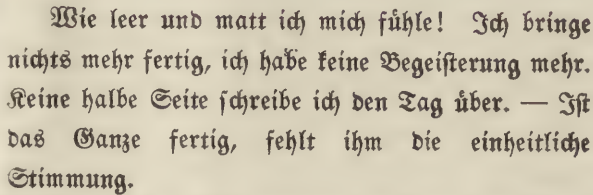 Wie leer und matt ich mich fühle! Ich bringe
nichts mehr fertig, ich habe keine Begeisterung mehr.
Keine halbe Seite schreibe ich den Tag über. — Ist
das Ganze fertig, fehlt ihm die einheitliche
Stimmung.